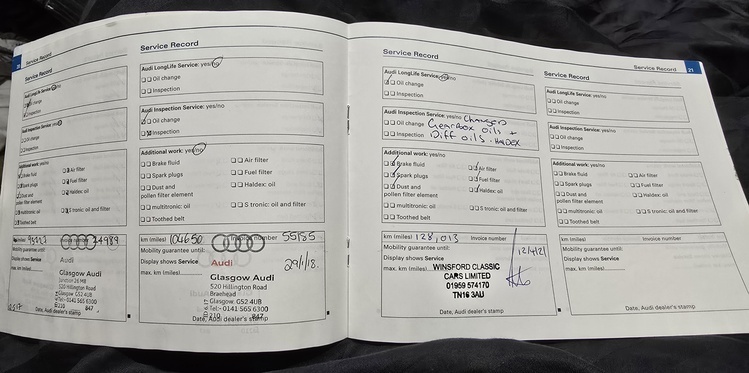 20
Service Record
Audi LongLife Service: yes/no
Oil change
Inspection
Audi Inspection Service: yes/no
Oil change
Inspection
Additional work: yes/no
Brake fluid
Air filter
Spark plugs
Fuel filter
Dust and
Haldex: oil
pollen filter element
multitronic: oil
S tronic: oil and filter
Toothed belt
km (miles)
Invoice number
Mobility guarantee until:
Display shows Service
max. km (miles)
Audi
Glasgow Audi
520 Hillington Road
Glasgow G52 4UB
Tel:- 0141 565 6300
210 847
Date, Audi dealer's stamp
Service Record
Audi LongLife Service: yes/no
Oil change
Inspection
Audi Inspection Service: yes/no
Oil change
Inspection
Additional work: yes/no
Brake fluid
Air filter
Spark plugs
Fuel filter
Dust and
Haldex: oil
pollen filter element
multitronic: oil
S tronic: oil and filter
Toothed belt
km (miles) 104650 Invoice number 55185
Mobility guarantee until:
Display shows Service
29/1/18.
max. km (miles)
Audi
Glasgow Audi
520 Hillington Road
Braehead
Glasgow: G52 4UB
Tel:- 0141 565 6300
210 847
Date, Audi dealer's stamp
Service Record
Audi LongLife Service: yes/no
Oil change
Inspection
Audi Inspection Service: yes/no Changed
Oil change Gearbox oils +
Inspection Diff oils. HALDEX
Additional work: yes/no
Brake fluid
Air filter
Spark plugs
Fuel filter
Dust and
Haldex: oil
pollen filter element
multitronic: oil
S tronic: oil and filter
Toothed belt
km (miles) 128,013 Invoice number
Mobility guarantee until:
12/4/21
Display shows Service
max. km (miles)
WINSFORD CLASSIC
CARS LIMITED
01959 574170
TN16 3AU
Date, Audi dealer's stamp
Service Record
21
Audi LongLife Service: yes/no
Oil change
Inspection
Audi Inspection Service: yes/no
Oil change
Inspection
Additional work: yes/no
Brake fluid
Air filter
Spark plugs
Fuel filter
Dust and
Haldex: oil
pollen filter element
multitronic: oil
S tronic: oil and filter
Toothed belt
km (miles)
Invoice number
Mobility guarantee until:
Display shows Service
max. km (miles)
Date, Audi dealer's stamp